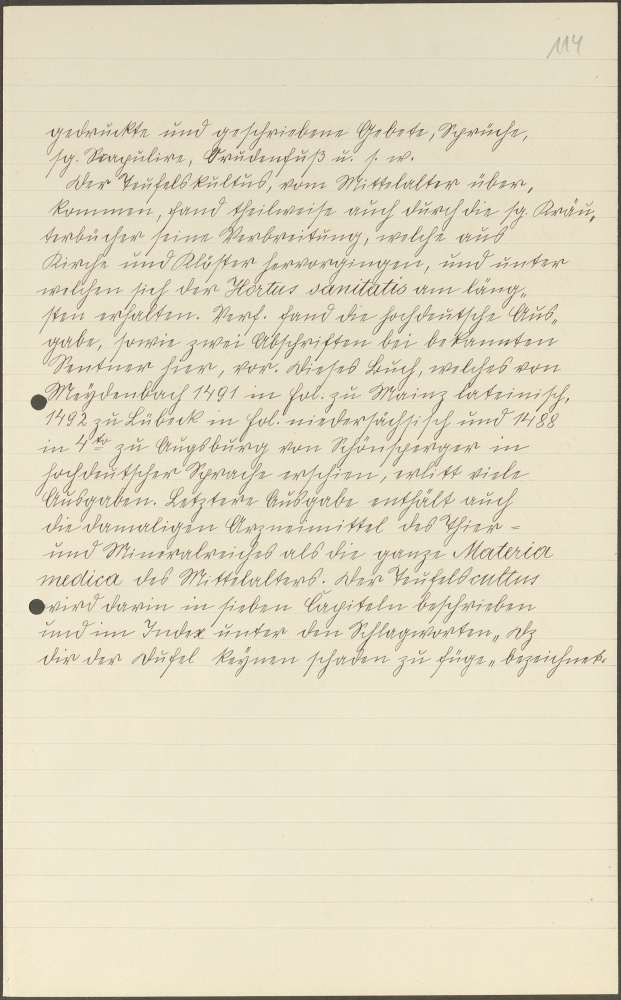 114
gedruckte und geschriebene Gebete, Sprüche,
sg. Skapulire, Drudenfuß u. s. w.
Der Teufelskultus, vom Mittelalter über„
kommen, fand theilweise auch durch die sg. Kräu„
terbücher seine Verbreitung, welche aus
Kirche und Klöster hervorgingen, und unter
welchen sich der Hortus sanitatis am läng„
sten erhalten. Verf. fand die hochdeutsche Aus„
gabe, sowie zwei Abschriften bei bekannten
Sentner hier, vor. Dieses Buch, welches von
Meydenbach 1491 in fol. zu Mainz lateinisch,
1492 zu Lübeck in fol. niedersächsisch und 1488
in 4to zu Augsburg von Schönsperger in
hochdeutscher Sprache erschien, erlitt viele
Ausgaben. Letztere Ausgabe enthält auch
die damaligen Arzneimittel des Thier-
und Mineralreiches als die ganze Materia
medica des Mittelalters. Der Teufelscultus
wird darin in sieben Capiteln beschrieben
und im Index unter den Schlagworten „Dz
dir der Dufel keynen schaden zu füge„ bezeichnet.